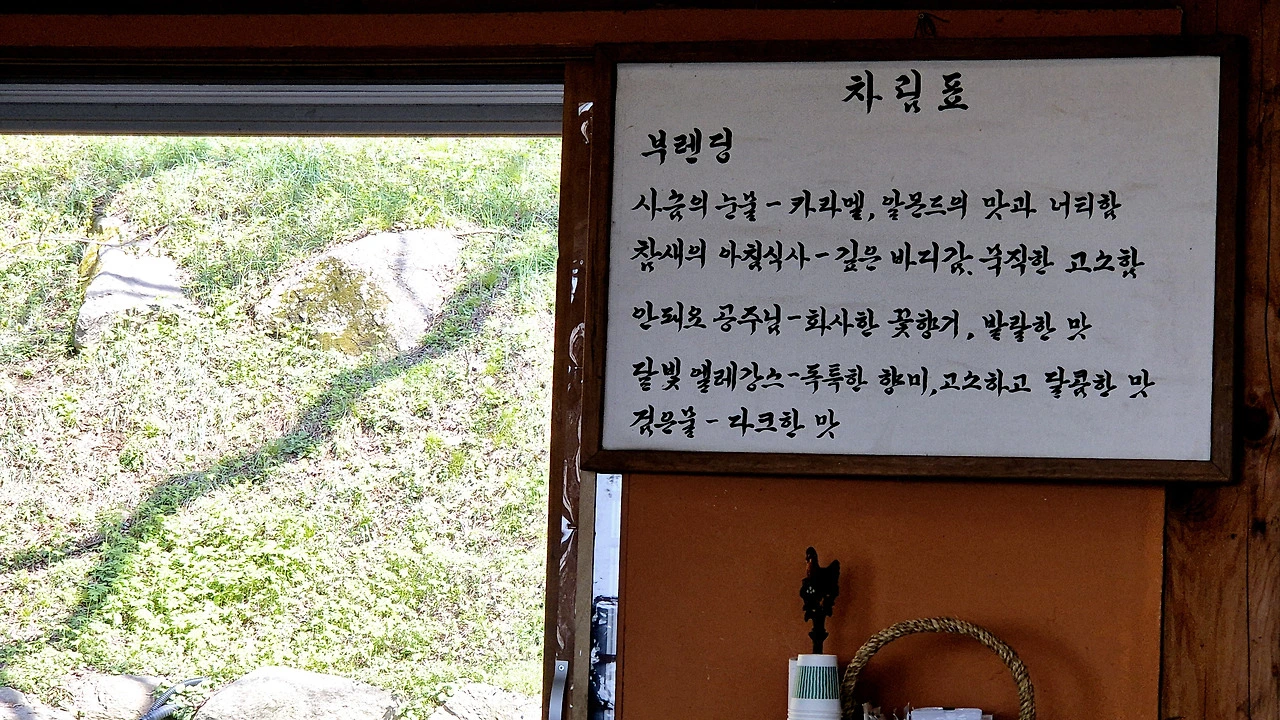 차림표
부렌딩
사슴의 눈물 - 카라멜, 알몬드의 맛과 너티함
참새의 아침식사 - 깊은 바디감, 묵직한 고소함
안되오 공주님 - 화사한 꽃향기, 발랄한 맛
달빛 엘레강스 - 독특한 향미, 고소하고 달콤한 맛
검은물 - 다크한 맛